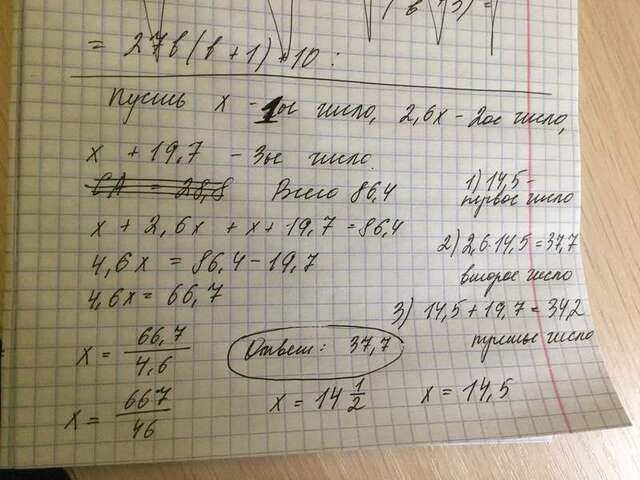 = 27в(в+1)+10:
Пусть x - 1ое число, 2,6x - 2ое число,
x + 19,7 - 3ье число.
Всего 86,4
x + 2,6x + x + 19,7 = 86,4
4,6x = 86,4 - 19,7
4,6x = 66,7
x = 66,7/4,6
x = 667/46
Ответ: 37,7
x = 14 1/2
x = 14,5
1) 14,5 -
первое число
2) 2,6·14,5 = 37,7
второе число
3) 14,5 + 19,7 = 34,2
третье число